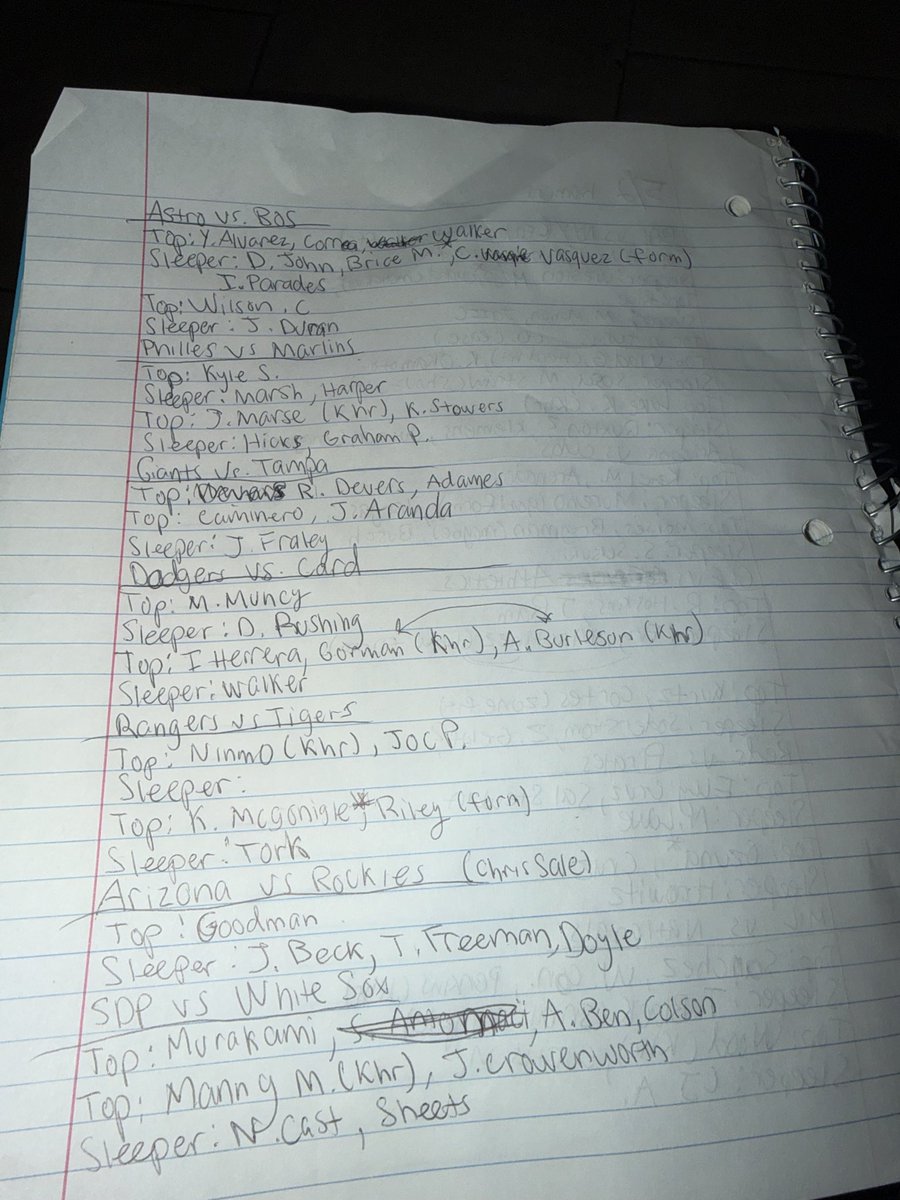 Astro vs. BOS
Top: Y. Alvarez, Correa, Walker
Sleeper: D. John, Brice M., C. Vasquez (form)
I. Parades
Top: Wilson. C
Sleeper: J. Duran
Philles vs Marlins
Top: Kyle S.
Sleeper: Marsh, Harper
Top: J. Marse (Khr), K. Stowers
Sleeper: Hicks, Graham P.
Giants vs. Tampa
Top: R. Devers, Adames
Top: Caminero, J. Aranda
Sleeper: J. Fraley
Dodgers vs. Card
Top: M. Muncy
Sleeper: D. Rushing
Top: I Herrera, Gorman (Khr), A. Burleson (Khr)
Sleeper: Walker
Rangers vs Tigers
Top: Ninmo (Khr), Joc P.
Sleeper:
Top: K. Mcgonigle*, Riley (form)
Sleeper: Tork
Arizona vs Rockies (Chris Sale)
Top: Goodman
Sleeper: J. Beck, T. Freeman, Doyle
SDP vs White Sox
Top: Murakami, A. Ben, Colson
Top: Manny M. (Khr), J. Crowenworth
Sleeper: N. Cast, Sheets